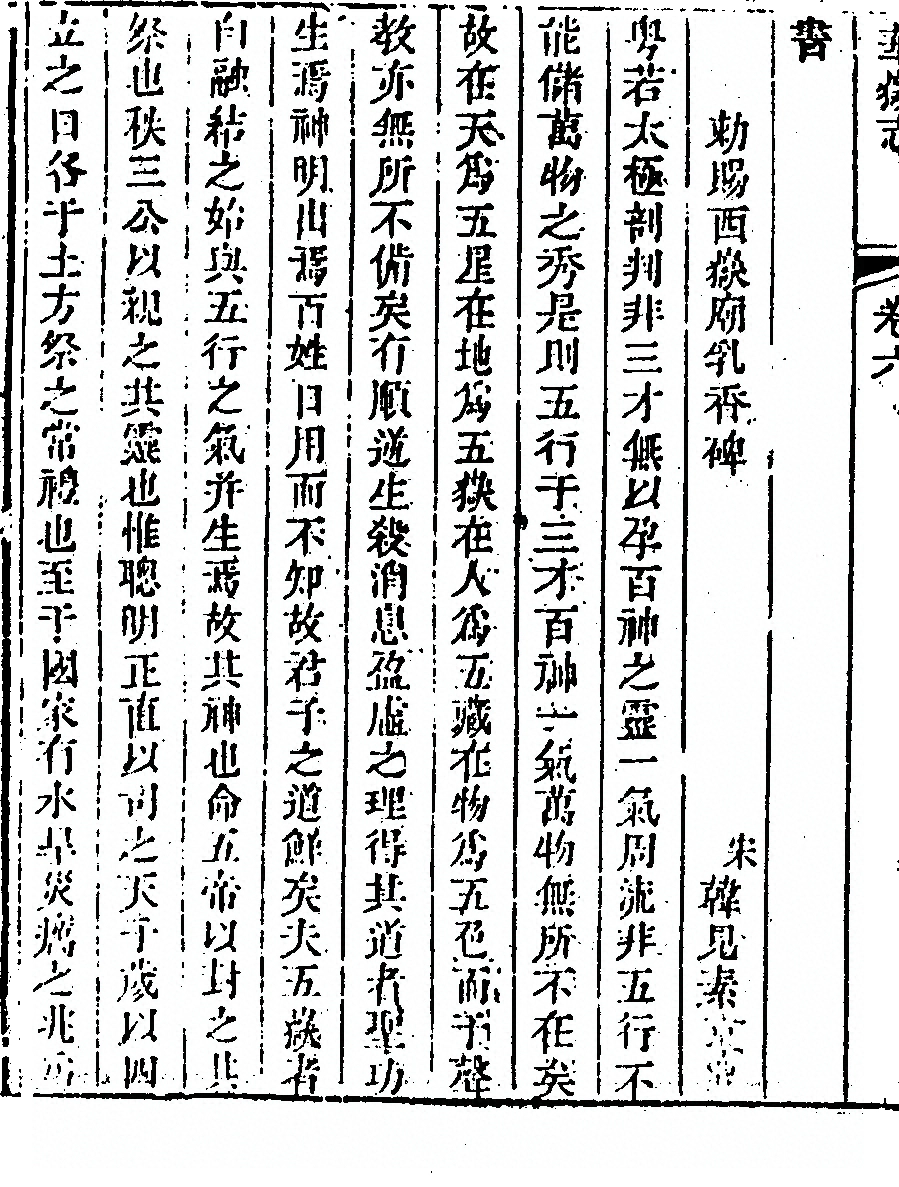 華嶽志 卷六
書
勅賜西嶽廟乳香碑 宋 韓見素
粤若太極剖判非三才無以孕百神之靈一氣周流非五行不
能儲萬物之秀是則五行于三才百神一氣萬物無所不在矣
故在天爲五星在地爲五嶽在人爲五藏在物爲五色而于聲
教亦無所不備矣有順逆生殺消息盈虛之理得其道者聖功
生焉神明出焉百姓日用而不知故君子之道鮮矣夫五嶽者
自融結之始與五行之氣并生焉故其神也命五帝以封之其
祭也秩三公以視之其靈也惟聰明正直以司之天子歲以四
立之日各于土方祭之常禮也至于國家有水旱災癘之兆